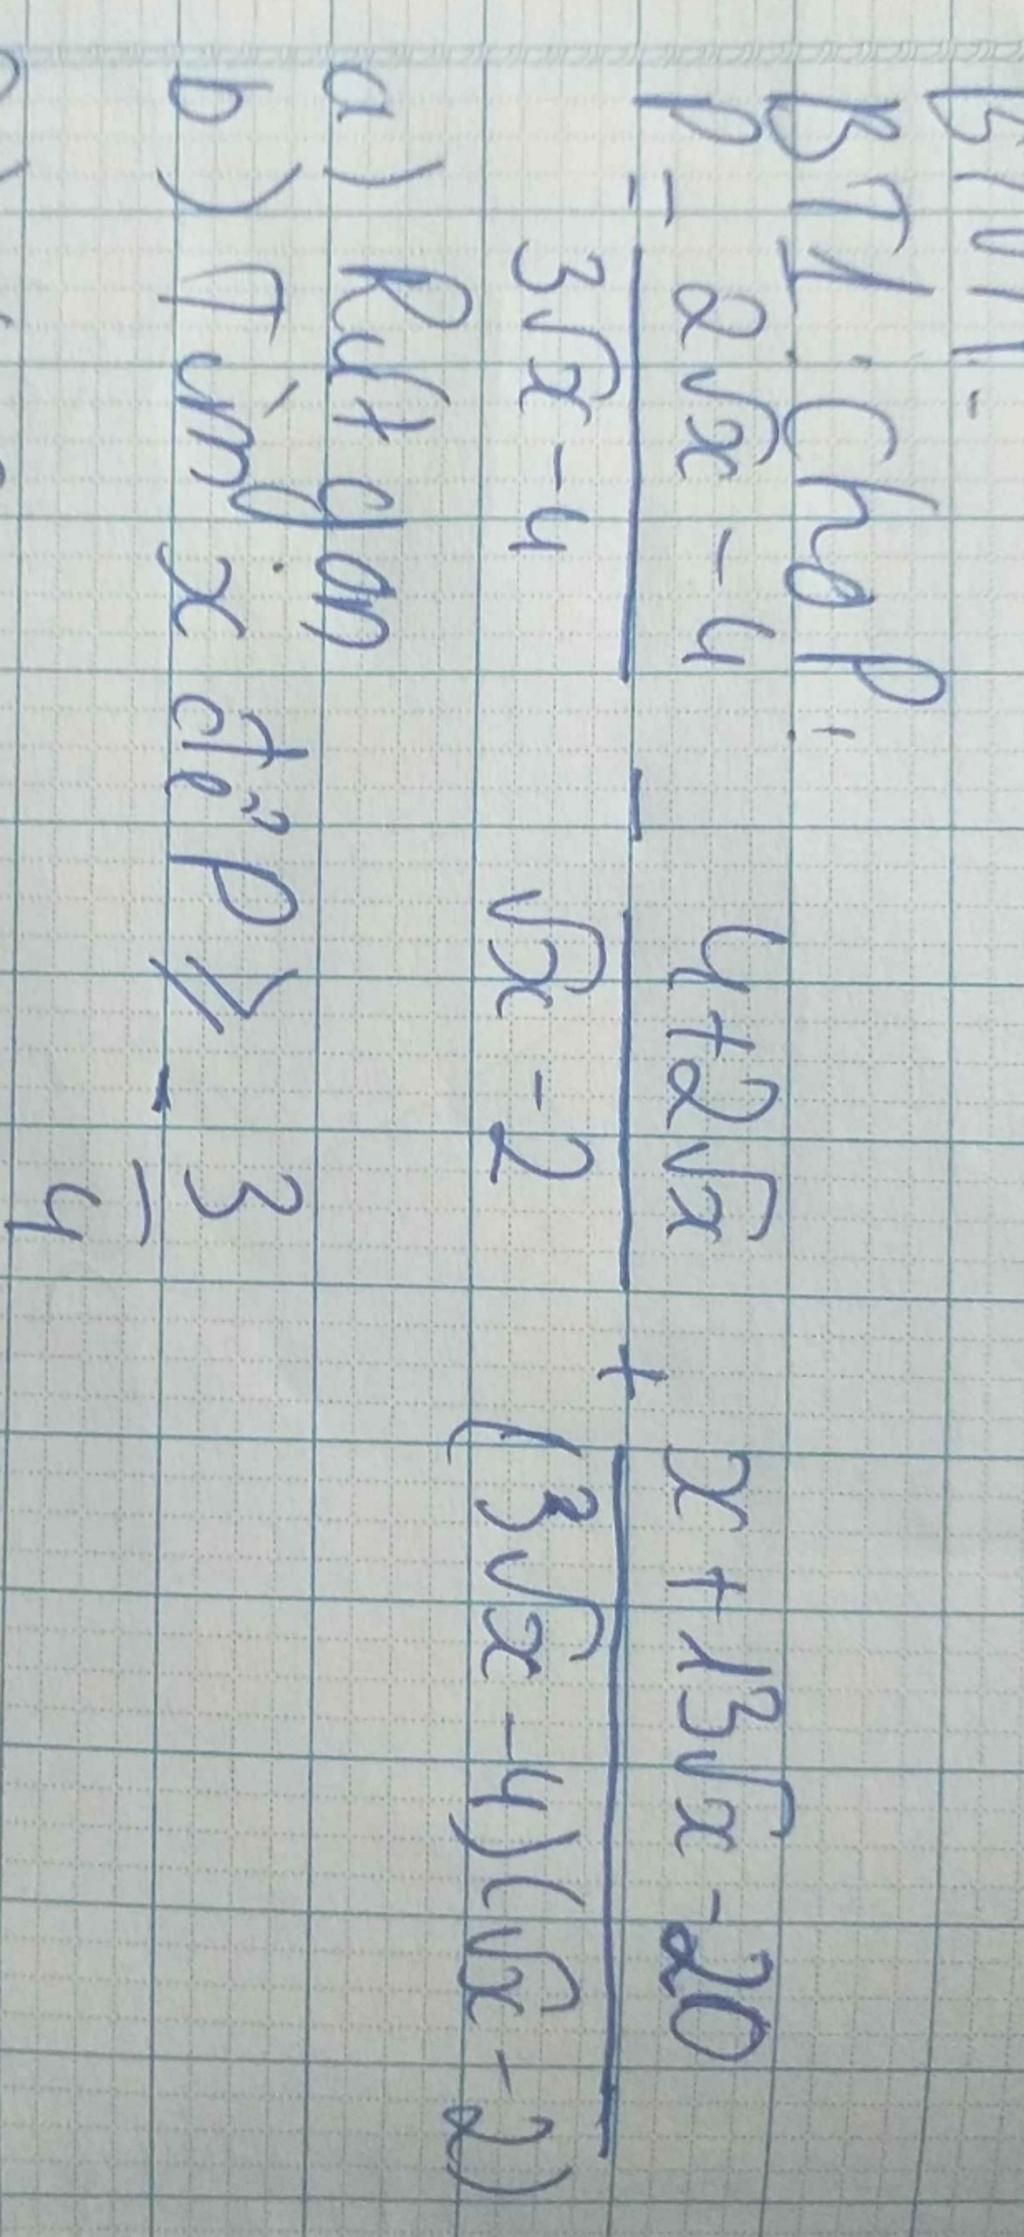 BT1: Cho P:
P = \frac{2\sqrt{x} - 4}{3\sqrt{x} - 4} - \frac{4 + 2\sqrt{x}}{\sqrt{x} - 2} + \frac{x + 13\sqrt{x} - 20}{(3\sqrt{x} - 4)(\sqrt{x} - 2)}
a) Rút gọn
b) Tìm x để P ≥ -\frac{3}{4}